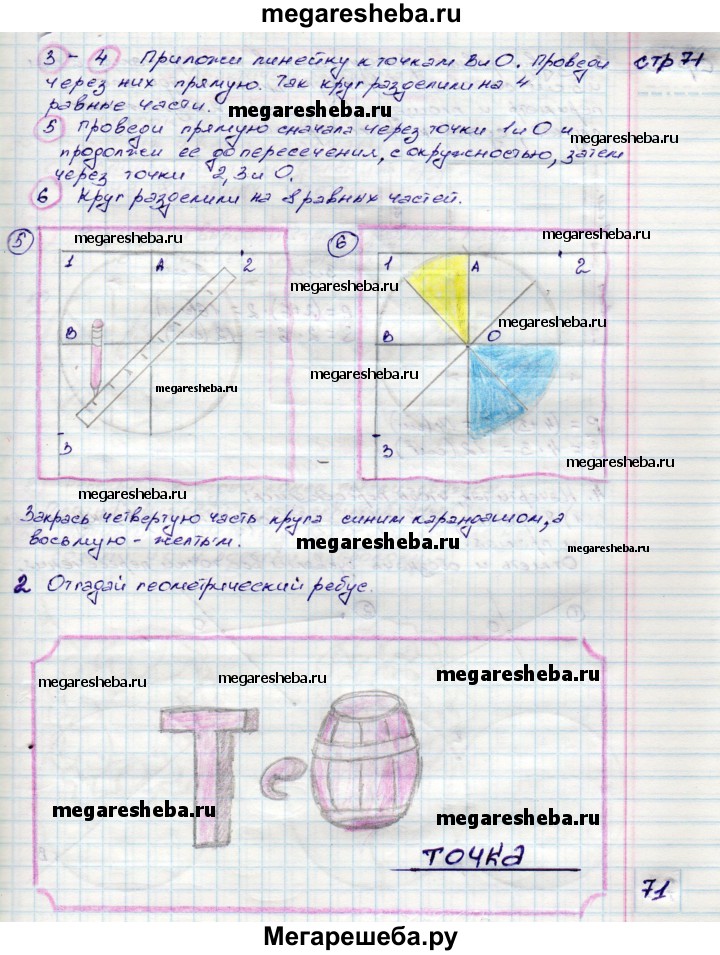 megaresheba.ru
3 - 4 Приложи линейку к точкам В и О. Проведи
стр 71
через них прямую. Так круг разделили на 4
равные части.
megaresheba.ru
5 Проведи прямую сначала через точки 1 и О и
продолжи ее до пересечения, с окружностью, затем
через точки 2, 3 и О.
6 Круг разделили на 8 равных частей.
5
megaresheba.ru
6
megaresheba.ru
1 А 2
1 А 2
megaresheba.ru
megaresheba.ru
В
В О
megaresheba.ru
megaresheba.ru
3
3
megaresheba.ru
megaresheba.ru
Закрась четвертую часть круга синим карандашом, а
восьмую - желтым.
megaresheba.ru
2 Отгадай геометрический ребус.
megaresheba.ru
megaresheba.ru
megaresheba.ru
Т
megaresheba.ru
megaresheba.ru
точка
71
Мегарешеба.ру